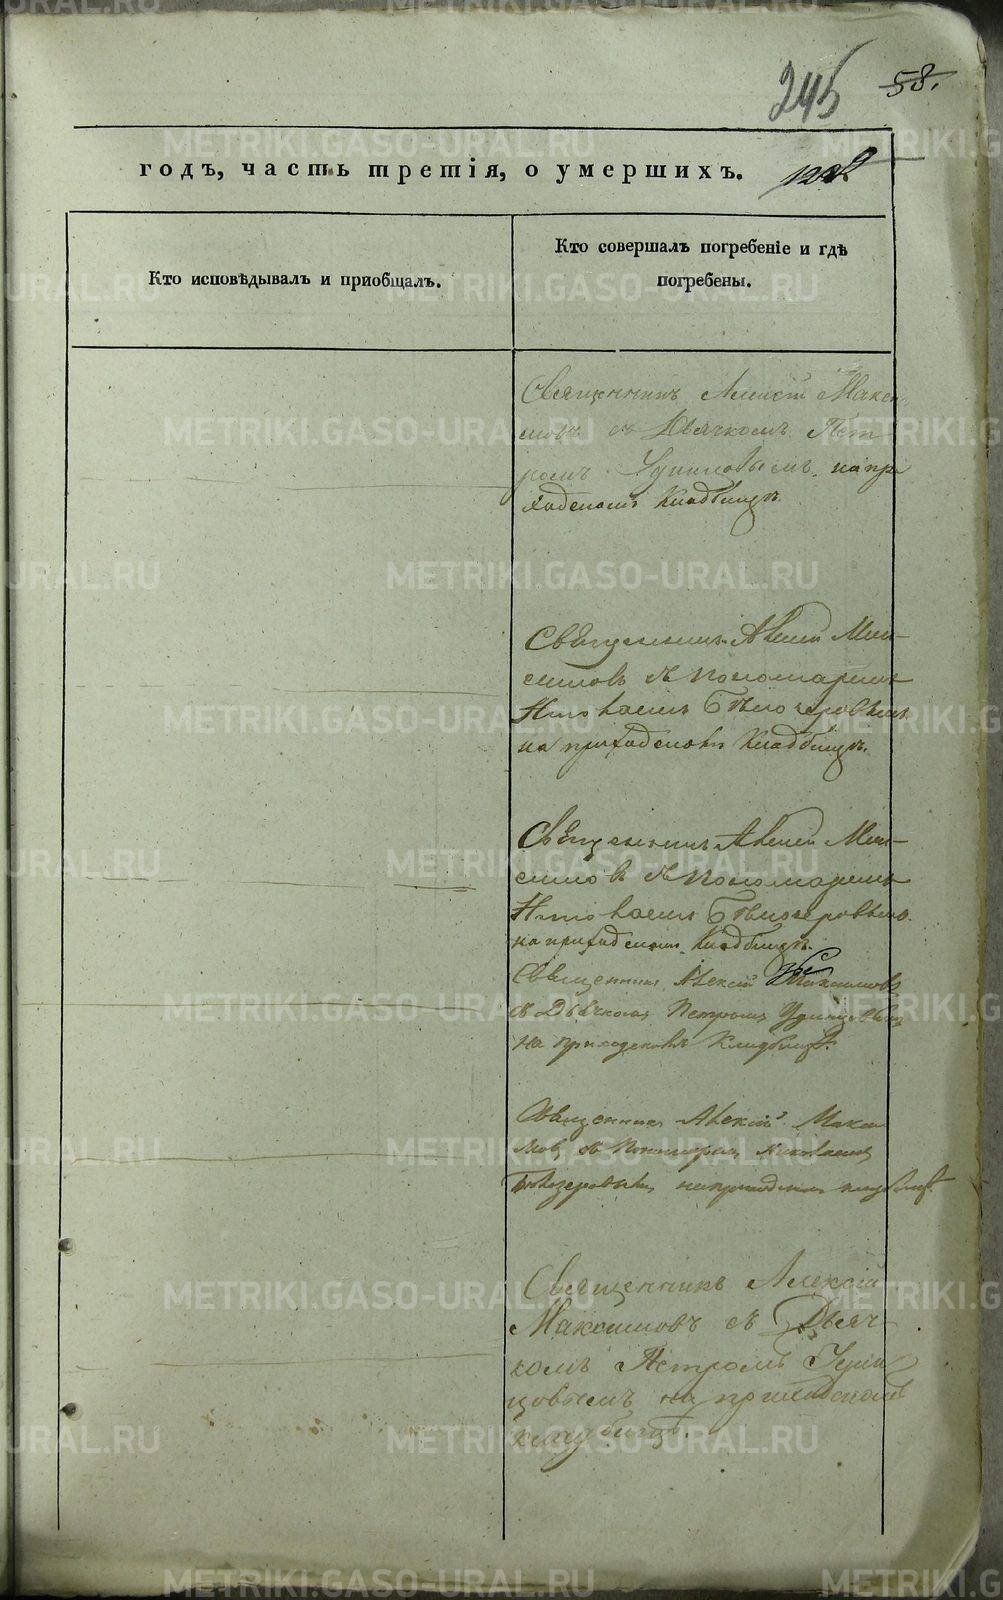 245 58.
годъ, часть третія, о умершихъ.
Кто исповѣдывалъ и приобщалъ.
Кто совершалъ погребеніе и гдѣ
погребены.
Священникъ Алексій Макси
мовъ съ Дьячкомъ Пет
ромъ Удинцовымъ на при
ходскомъ Кладбищѣ.
Священникъ Алексій Мак-
симовъ съ Пономаремъ
Николаемъ Бѣлозеровымъ
на приходскомъ Кладбищѣ.
Священникъ Алексій Мак-
симовъ съ Пономаремъ
Николаемъ Бѣлозеровымъ
на приходскомъ Кладбищѣ.
Священникъ Алексій Максимовъ
съ Дьячкомъ Петромъ Удинцовымъ
на приходскомъ Кладбищѣ.
Священникъ Алексій Макси
мовъ съ Пономаремъ Николаемъ
Бѣлозеровымъ на приходскомъ кладбищѣ.
Священникъ Алексій
Максимовъ съ Дьяч-
комъ Петромъ Удин
цовымъ на приходскомъ
кладбищѣ.
METRIKI.GASO-URAL.RU